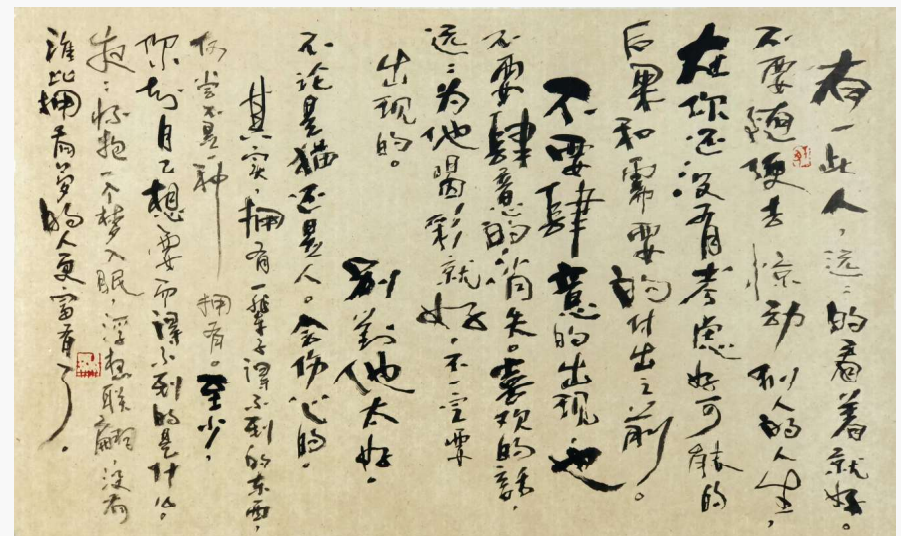 有一些人，远々的看着就好。
不要随便去惊动别人的人生，
在你还没有考虑好可能的
后果和需要的付出之前。
不要肆意的出现也
不要肆意的消失。喜欢的话，
远々为他喝彩就好，不一定要
出现的。
别對他太好。
不论是猫还是人。会伤心的。
其实，拥有一辈子得不到的东西，
何尝不是一种拥有。至少，
你知自己想要而得不到的是什么。
夜々怀抱一个梦入眠，浮想联翩，没有
谁比拥有梦的人更富有了。